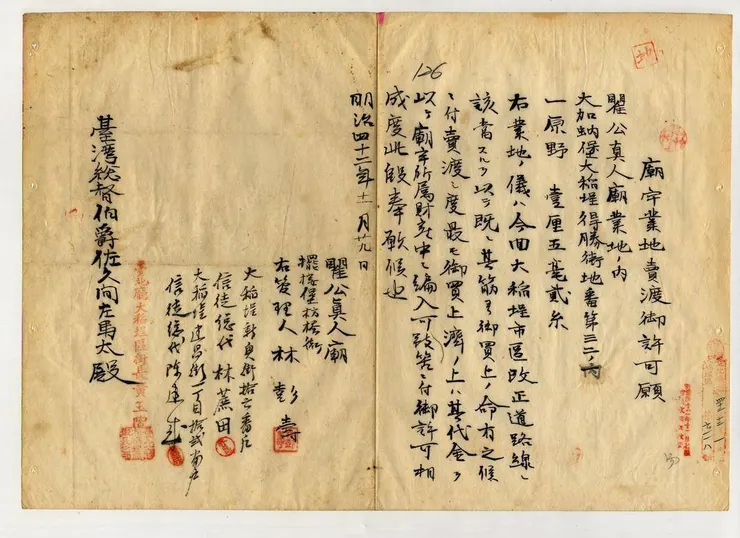 廟宇業地賣渡御許可願
瞿公真人廟業地ノ內
大加蚋堡大稻埕得勝街地番第三二ノ內
一原野 壹厘五毫貳糸
右業地ノ儀ハ今回大稻埕市區改正道路線ニ
該當スルヲ以テ既ニ其筋ヨリ御買上ノ命有之候
ニ付賣渡シ度最モ御買上濟ノ上ハ其代金ヲ
以テ廟宇所屬財產中ニ編入可致筈ニ付御許可相
成度此段奉願候也
明治四十二年十一月廿九日
瞿公真人廟
擺接堡枋橋街
右管理人 林彭壽
大稻埕新興街
信徒總代 林蕉田
大稻埕建昌街一丁目拾貳番戶
信徒總代 陳
臺灣總督伯爵佐久間左馬太殿
126
地